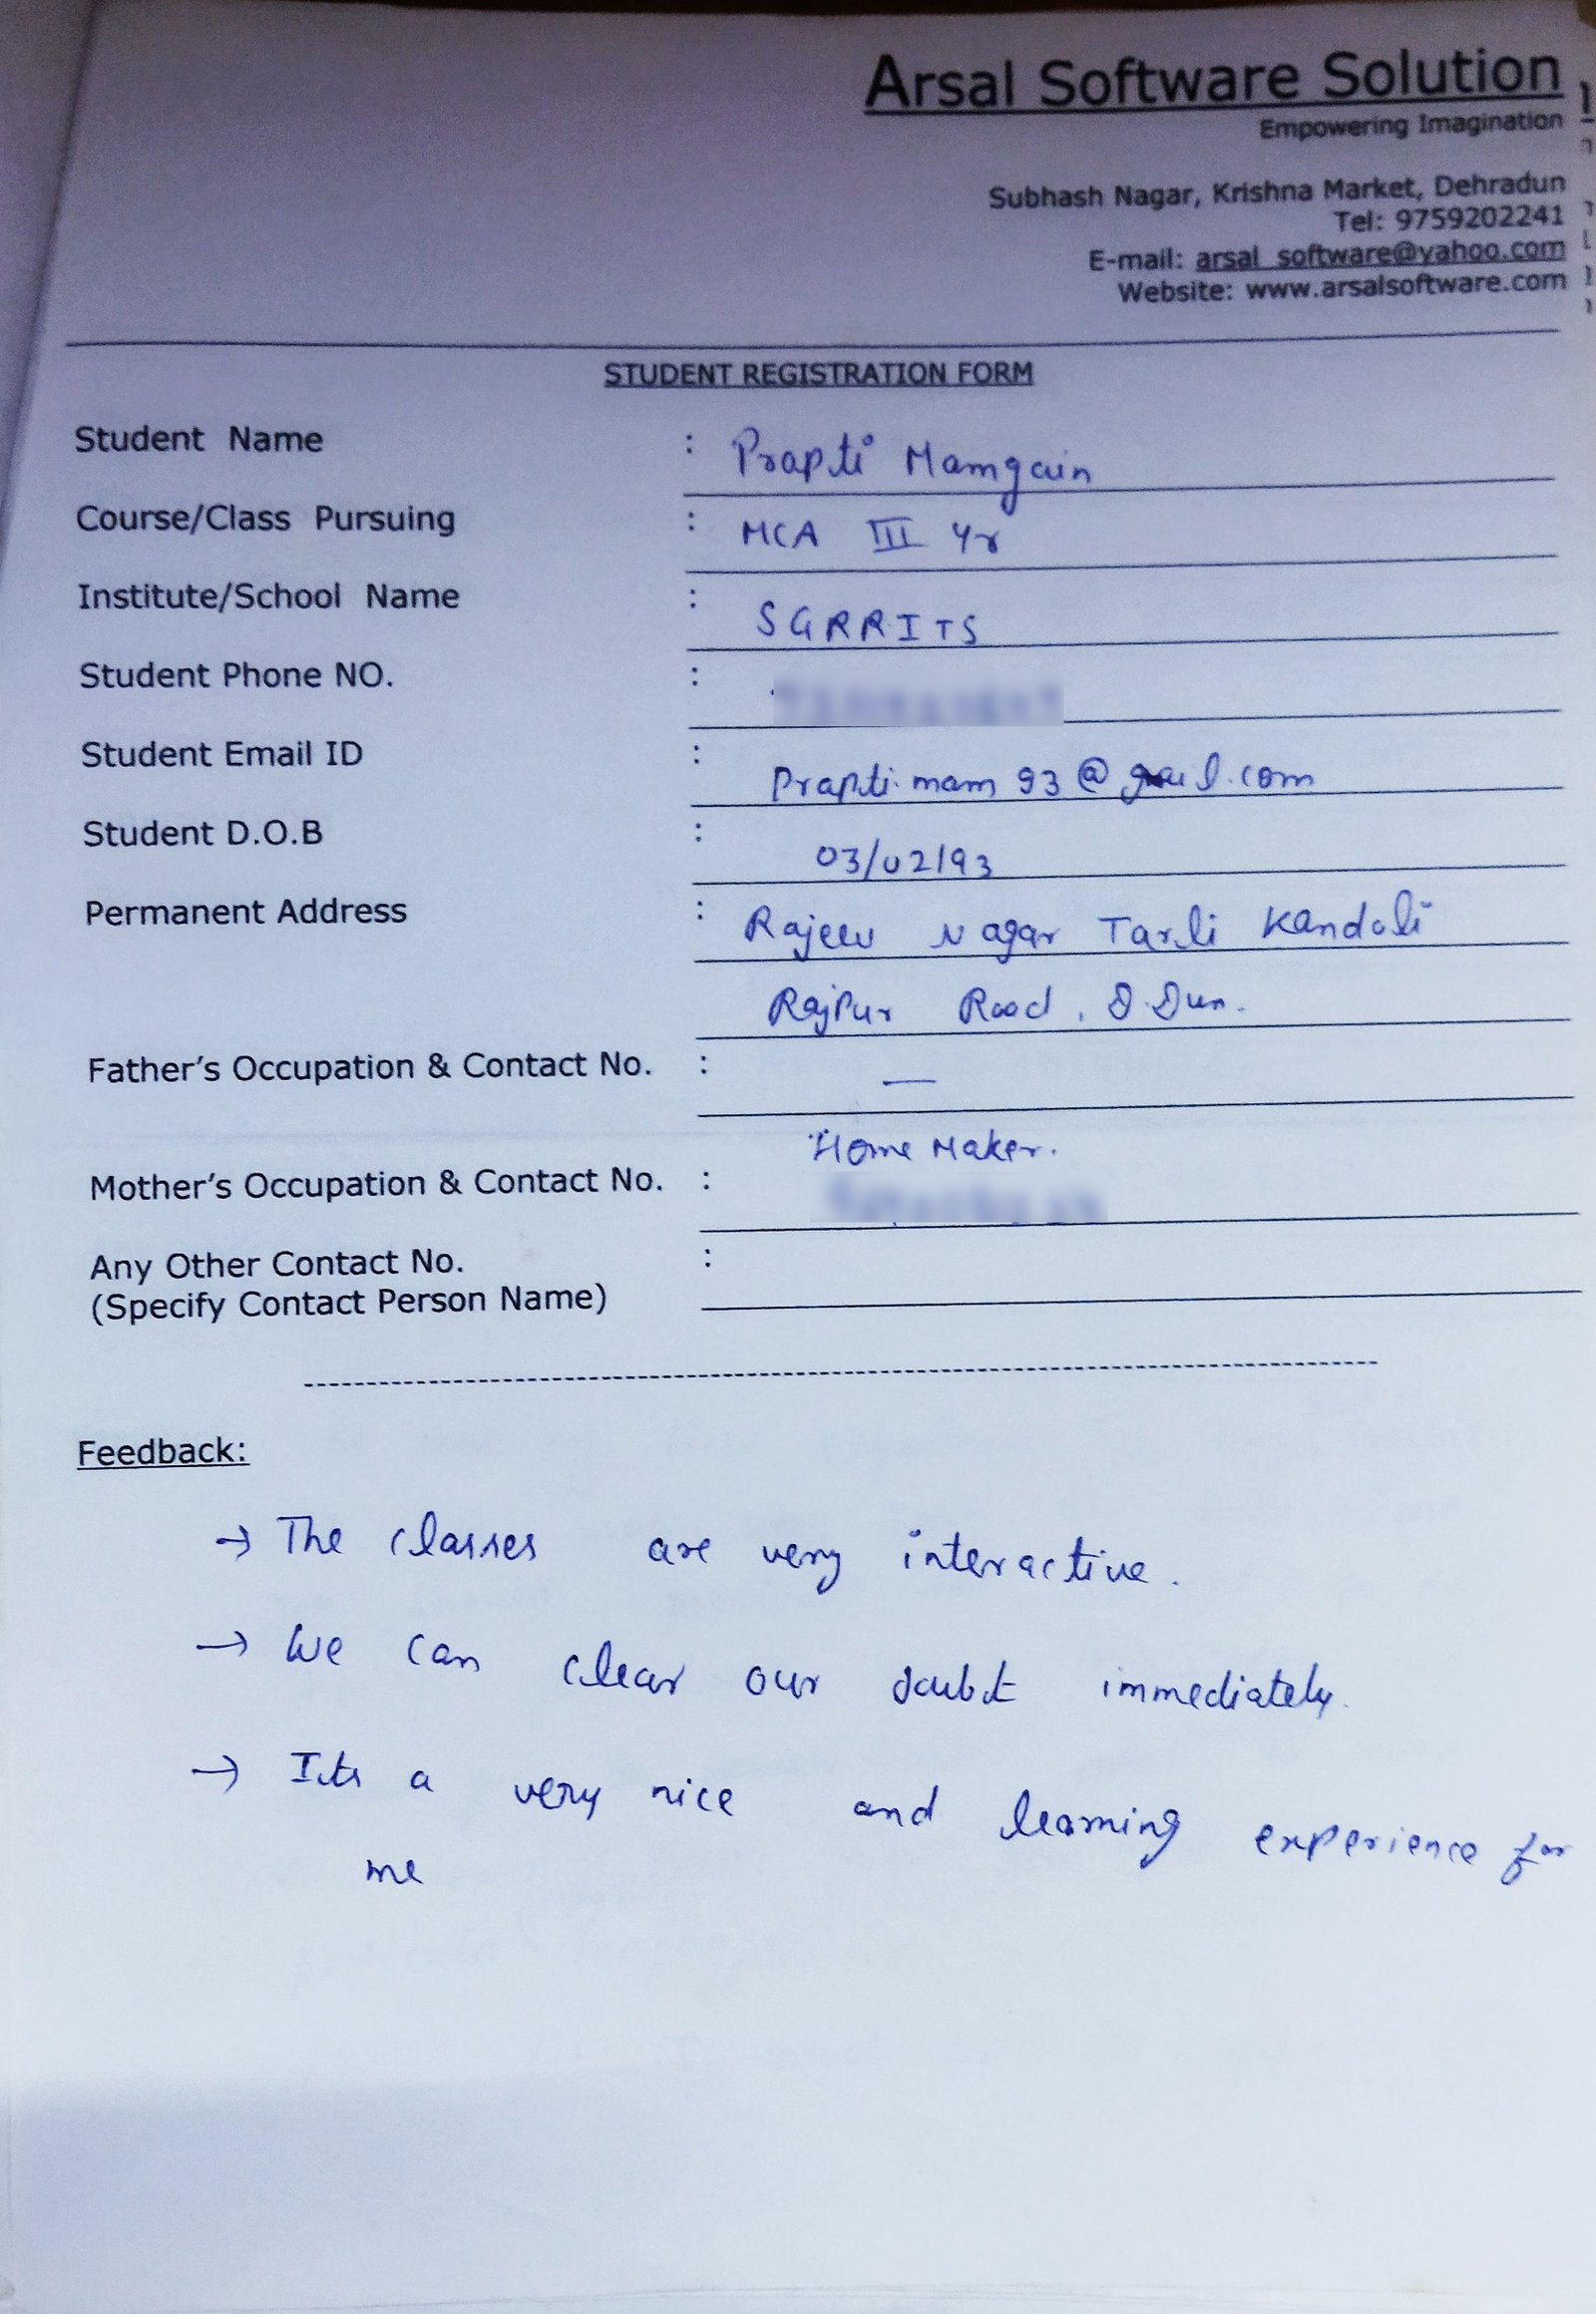 Arsal Software Solution
Empowering Imagination
Subhash Nagar, Krishna Market, Dehradun
Tel: 9759202241
E-mail: arsal_software@yahoo.com
Website: www.arsalsoftware.com
STUDENT REGISTRATION FORM
Student Name : Prapti Mamgain
Course/Class Pursuing : MCA III Yr
Institute/School Name : SGRRITS
Student Phone NO. :
Student Email ID : Prapti.mam93@gmail.com
Student D.O.B : 03/02/93
Permanent Address : Rajeev Nagar Tarli Kandoli
Rajpur Road, D.Dun.
Father's Occupation & Contact No. : —
Home Maker.
Mother's Occupation & Contact No. :
Any Other Contact No. :
(Specify Contact Person Name)
Feedback:
→ The classes are very interactive.
→ We can clear our doubt immediately.
→ Its a very nice and learning experience for
me